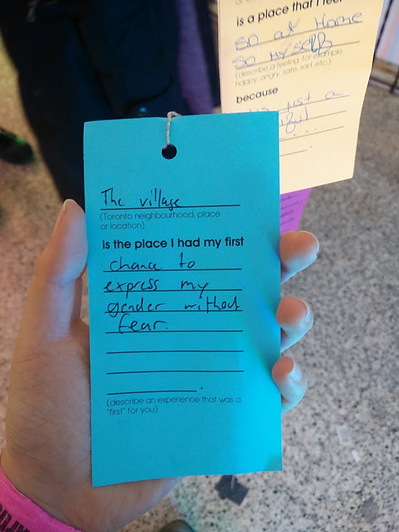 is a place that I feel
so at Home
so myself
(describe a feeling, for example
happy, angry, safe, sad, etc.)
because
just a
The village
(Toronto neighbourhood, place
or location)
is the place I had my first
chance to
express my
gender without
fear.
(describe an experience that was a
"first" for you)